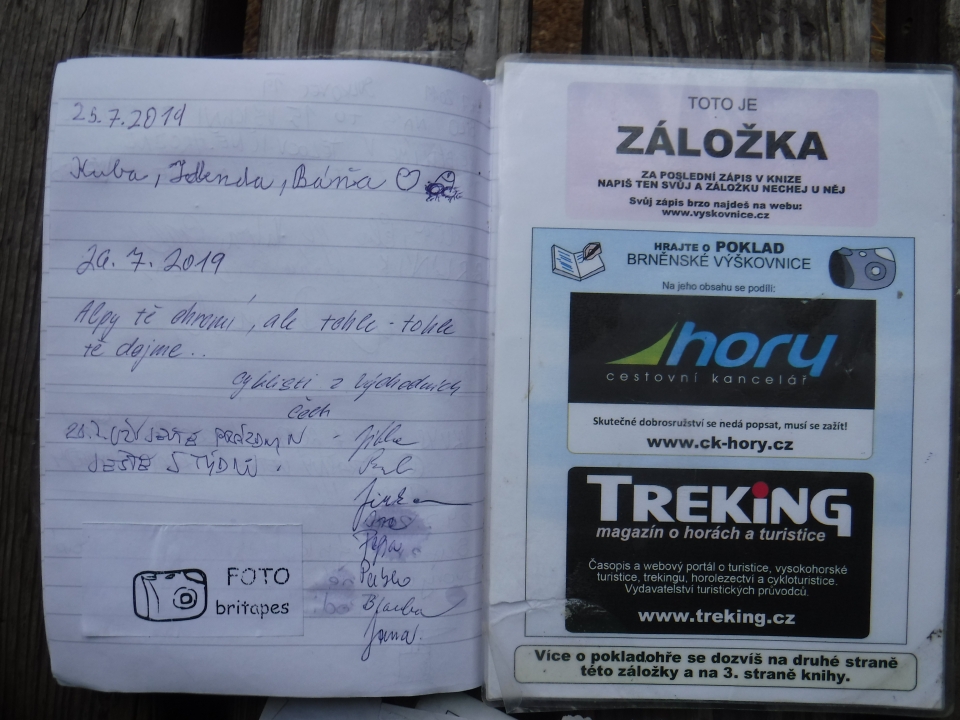 25.7.2019
Kuba, Zdenda, Báňa
29.7.2019
Alpy tě ohromí, ale tohle - tohle
tě dojme..
cyklisti z východních
čech
JEŠTĚ 5 TÝDNŮ.
Jirka
Pablo
Blanka
Jana.
FOTO
britapes
TOTO JE
ZÁLOŽKA
ZA POSLEDNÍ ZÁPIS V KNIZE
NAPIŠ TEN SVŮJ A ZÁLOŽKU NECHEJ U NĚJ
Svůj zápis brzo najdeš na webu:
www.vyskovnice.cz
HRAJTE O POKLAD
BRNĚNSKÉ VÝŠKOVNICE
Na jeho obsahu se podílí:
hory
cestovní kancelář
Skutečné dobrosružství se nedá popsat, musí se zažít!
www.ck-hory.cz
TREKING
magazín o horách a turistice
Časopis a webový portál o turistice, vysokohorské
turistice, trekingu, horolezectví a cykloturistice.
Vydavatelství turistických průvodců.
www.treking.cz
Více o pokladohře se dozvíš na druhé straně
této záložky a na 3. straně knihy.